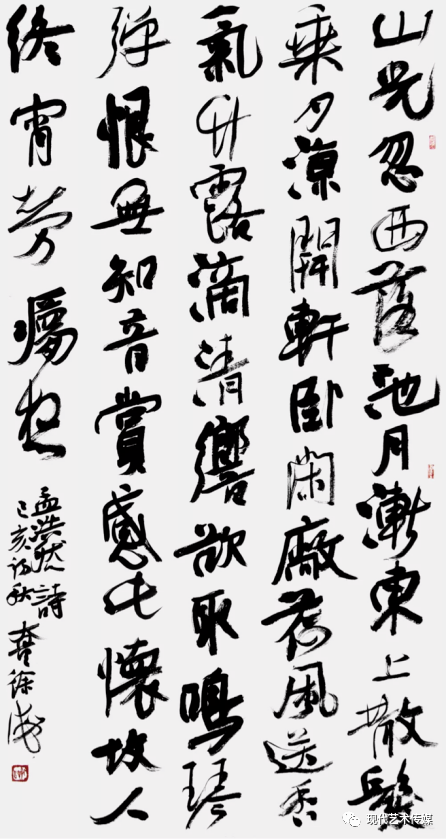 山光忽西落池月漸東上散髮
乘夕涼開軒卧閑廠荷風送香
氣竹露滴清響欲取鳴琴
弹恨無知音賞感此懷故人
终宵劳夢想
孟浩然詩
己亥初秋
现代艺术传媒